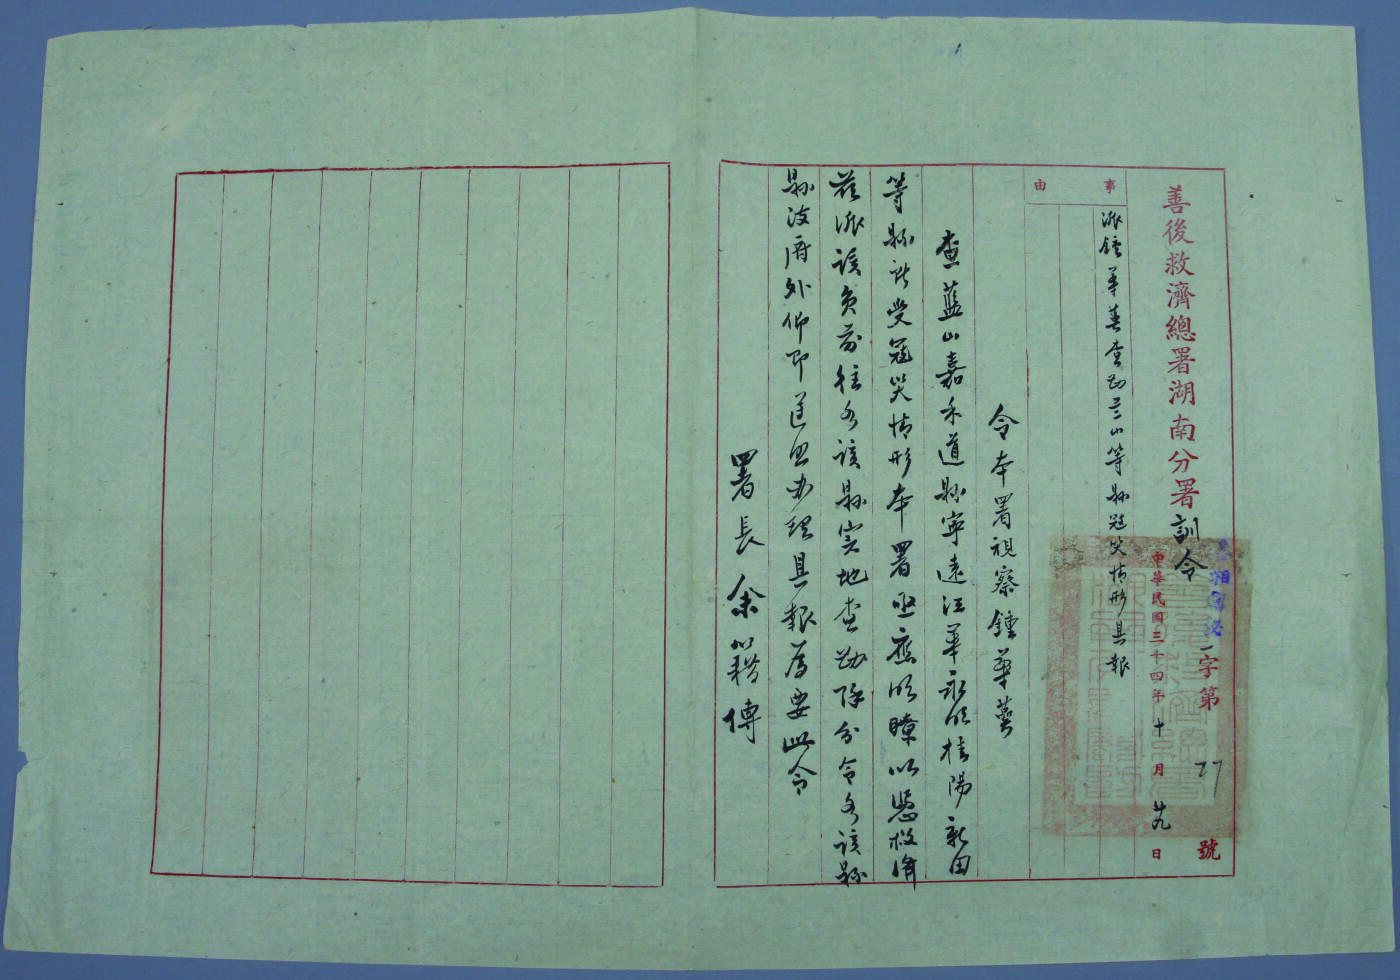 善後救濟總署湖南分署訓令
一字第27號
中華民國三十四年十月廿九日
事由
派鍾華蕚查勘兰山等縣冦災情形具報
令本署視察鍾華蕚
查藍山嘉禾道縣寧遠江華永明桂陽新田
等縣計受冦災情形本署亟應明瞭以憑救濟
茲派該員前往各該縣實地查勘除分令各該縣
縣政府外仰即遵照办理具報為要此令
署長余籍傳